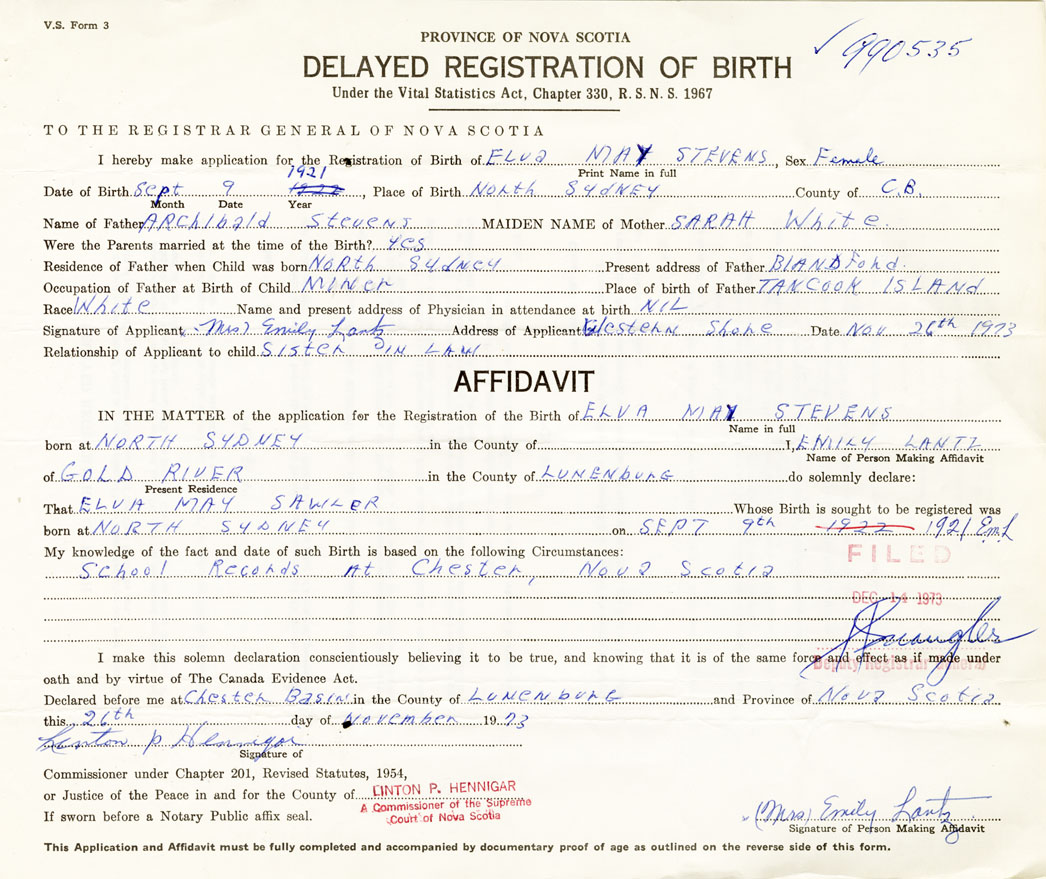 V.S. Form 3
✓ 990535
PROVINCE OF NOVA SCOTIA
DELAYED REGISTRATION OF BIRTH
Under the Vital Statistics Act, Chapter 330, R.S.N.S. 1967
TO THE REGISTRAR GENERAL OF NOVA SCOTIA
I hereby make application for the Registration of Birth of ELVA MAY STEVENS, Sex Female
Print Name in full
1921
Date of Birth Sept 9 1922, Place of Birth North SYDNEY County of C.B.
Month Date Year
Name of Father ARChibald Stevens MAIDEN NAME of Mother SARAH White
Were the Parents married at the time of the Birth? yes
Residence of Father when Child was born North SYDNEY Present address of Father BlANDFord
Occupation of Father at Birth of Child MINer Place of birth of Father TANCOOK ISLAND
Race White Name and present address of Physician in attendance at birth NIL
Signature of Applicant (Mrs) Emily Lantz Address of Applicant Western Shore Date Nov 26th 1973
Relationship of Applicant to child Sister IN LAW
AFFIDAVIT
IN THE MATTER of the application for the Registration of the Birth of ELVA MAY STEVENS
Name in full
born at NORTH SYDNEY in the County of I, EMILY LANTZ
Name of Person Making Affidavit
of GOLD RIVER in the County of LUNENBURG do solemnly declare:
Present Residence
That ELVA MAY SAWLER Whose Birth is sought to be registered was
born at NORTH SYDNEY on SEPT 9th 1922 1921 Em.L
My knowledge of the fact and date of such Birth is based on the following Circumstances:
School Records At Chester, Nova Scotia
FILED
DEC 14 1973
I make this solemn declaration conscientiously believing it to be true, and knowing that it is of the same force and effect as if made under
Deputy Registrar General
oath and by virtue of The Canada Evidence Act.
Declared before me at Chester Basin in the County of LUNENBURG and Province of Nova Scotia
this 26th day of November 1973
Linton P Hennigar
Signature of
Commissioner under Chapter 201, Revised Statutes, 1954,
or Justice of the Peace in and for the County of LINTON P. HENNIGAR
A Commissioner of the Supreme
Court of Nova Scotia
If sworn before a Notary Public affix seal.
(Mrs) Emily Lantz
Signature of Person Making Affidavit
This Application and Affidavit must be fully completed and accompanied by documentary proof of age as outlined on the reverse side of this form.